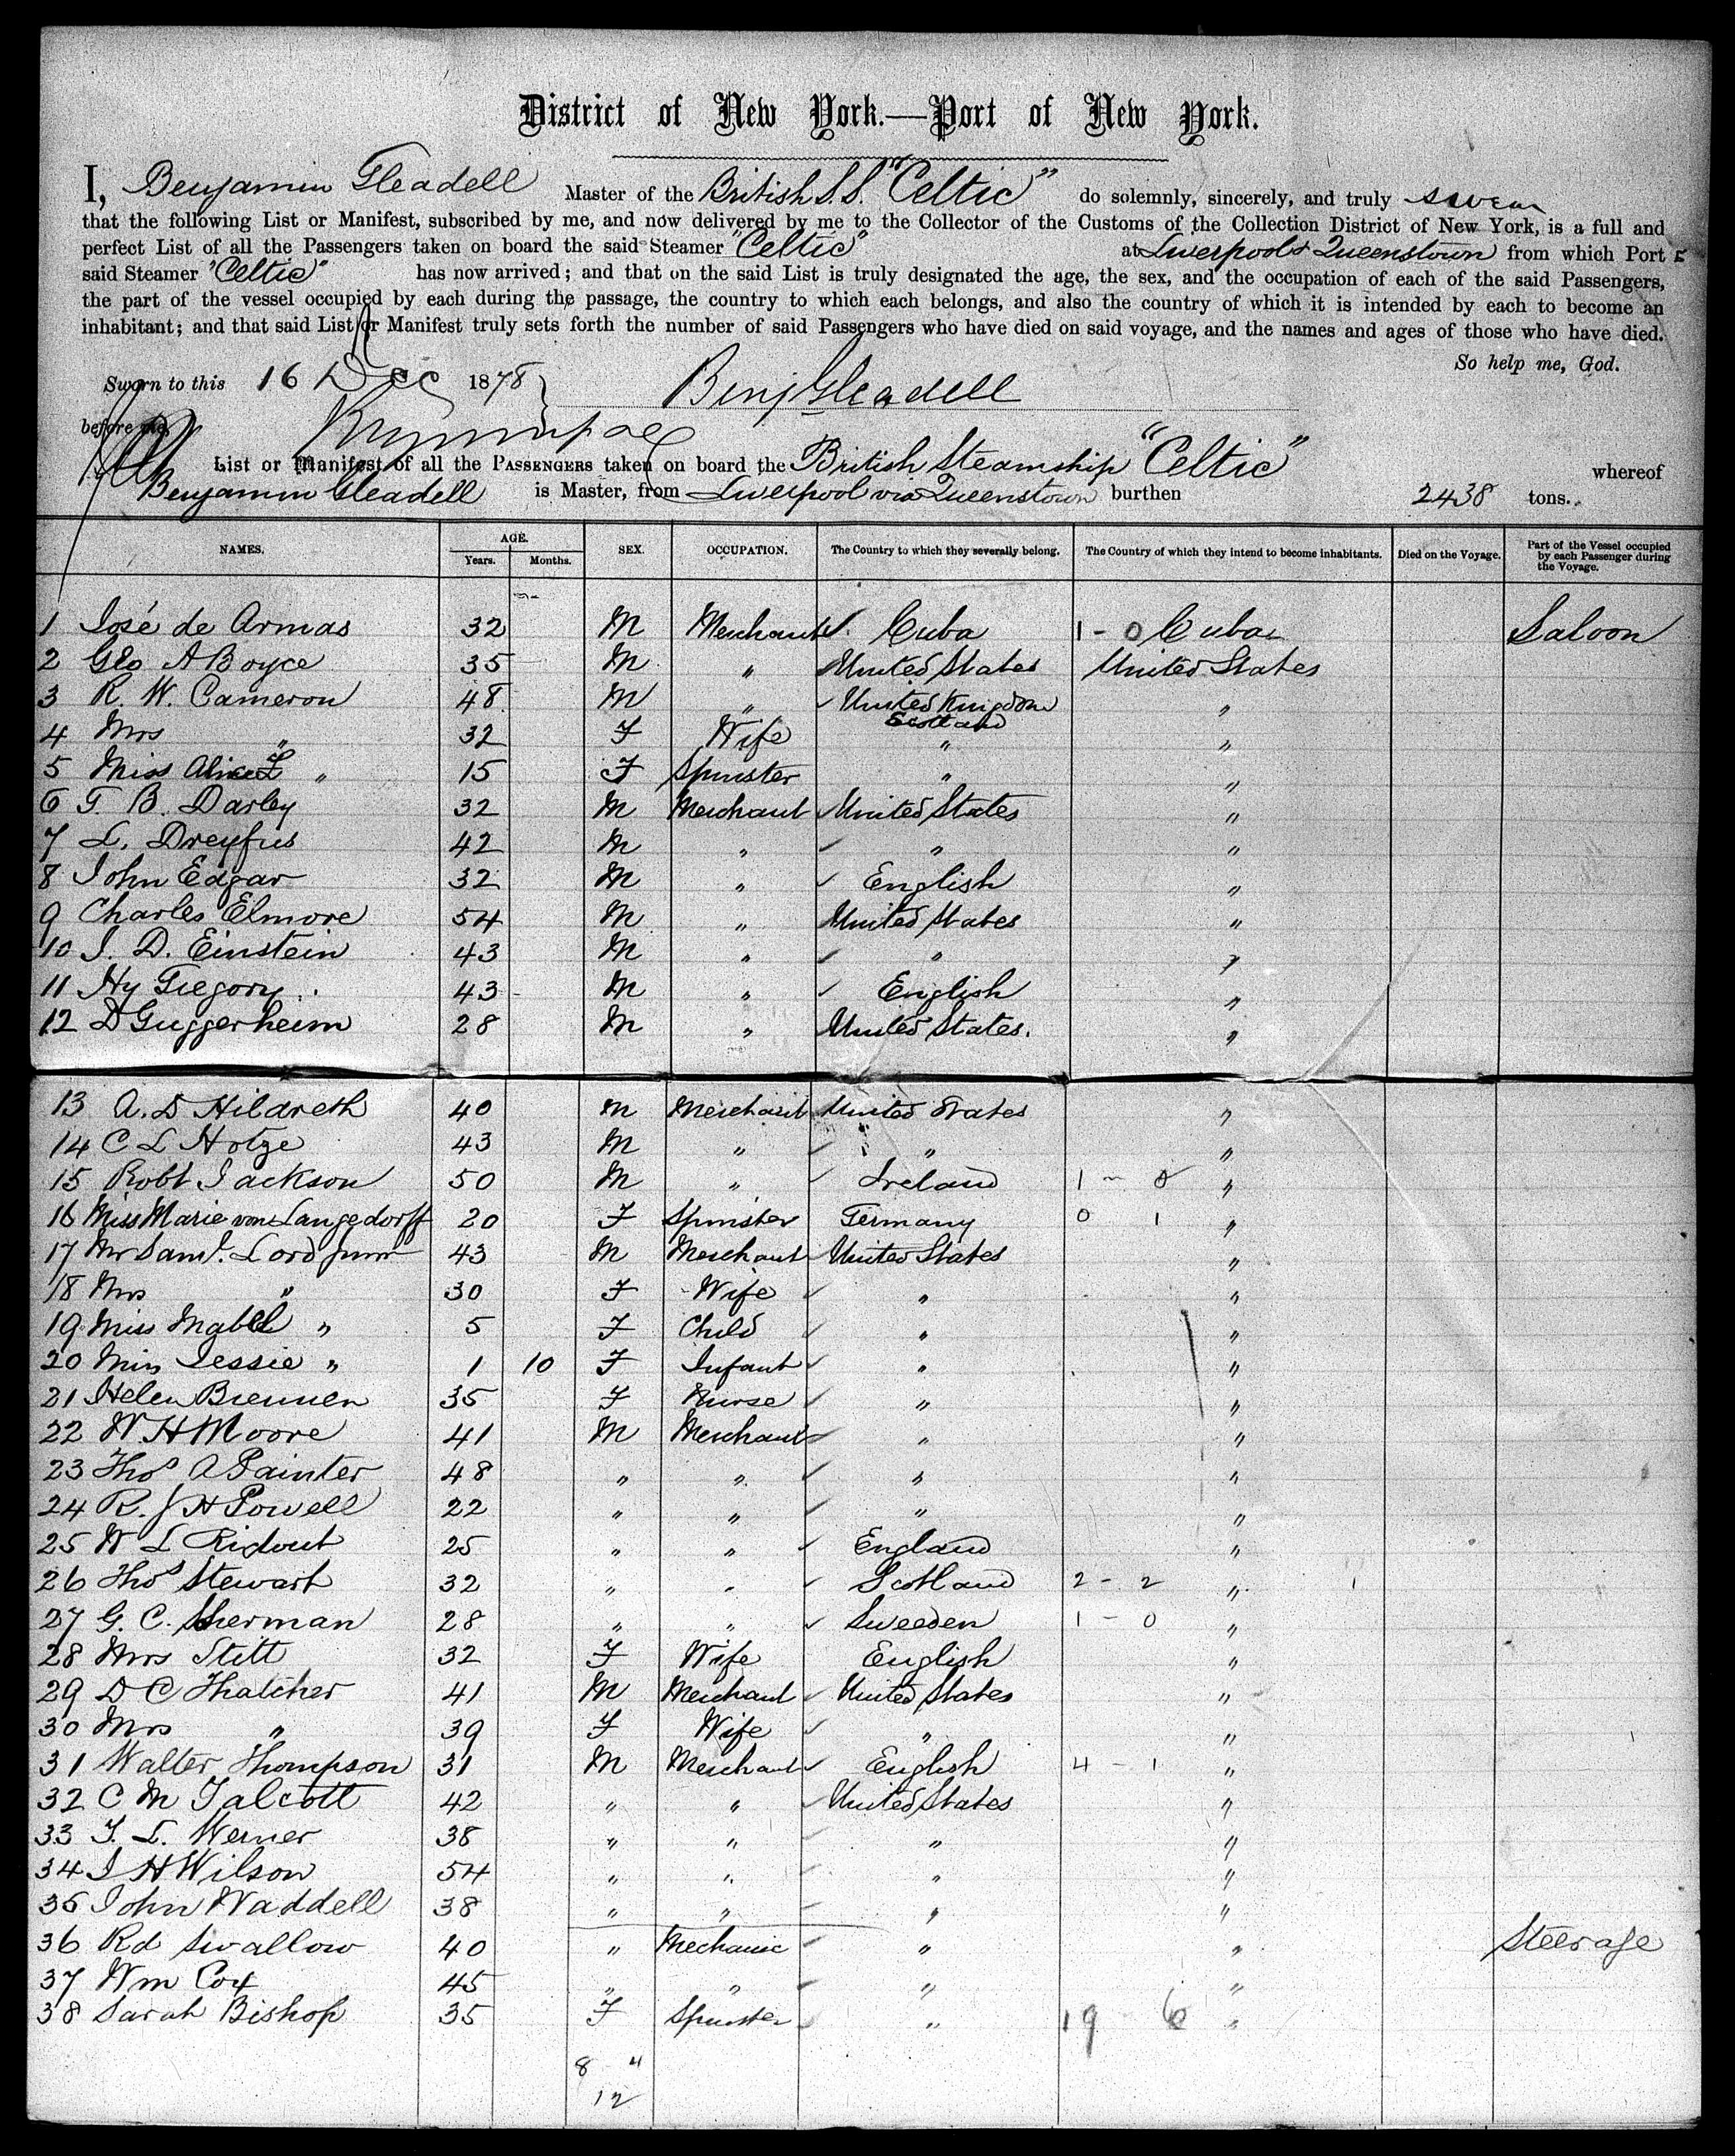 District of New York.—Port of New York.
I, Benjamin Gleadell Master of the British S.S. "Celtic" do solemnly, sincerely, and truly swear
that the following List or Manifest, subscribed by me, and now delivered by me to the Collector of the Customs of the Collection District of New York, is a full and
perfect List of all the Passengers taken on board the said Steamer "Celtic" at Liverpool & Queenstown from which Port s
said Steamer "Celtic" has now arrived; and that on the said List is truly designated the age, the sex, and the occupation of each of the said Passengers,
the part of the vessel occupied by each during the passage, the country to which each belongs, and also the country of which it is intended by each to become an
inhabitant; and that said List or Manifest truly sets forth the number of said Passengers who have died on said voyage, and the names and ages of those who have died.
So help me, God.
Sworn to this 16 Dec 1878 Benj Gleadell
before me,
List or Manifest of all the PASSENGERS taken on board the British Steamship "Celtic" whereof
Benjamin Gleadell is Master, from Liverpool via Queenstown burthen 2438 tons.
NAMES. AGE. Years. Months. SEX. OCCUPATION. The Country to which they severally belong. The Country of which they intend to become inhabitants. Died on the Voyage. Part of the Vessel occupied by each Passenger during the Voyage.
1 José de Armas 32 M Merchant Cuba 1 - 0 Cuba Saloon
2 Geo A Boyce 35 M " United States United States
3 R. W. Cameron 48 M " United Kingdom "
Scotland
4 Mrs " 32 F Wife " "
5 Miss Alice F " 15 F Spinster " "
6 F. B. Darley 32 M Merchant United States "
7 L. Dreyfus 42 M " " "
8 John Edgar 32 M " English "
9 Charles Elmore 54 M " United States "
10 J. D. Einstein 43 M " " "
11 Hy Gregory 43 M " English "
12 D Guggerheim 28 M " United States. "
13 A. D Hildreth 40 M Merchant United States "
14 C L Hotze 43 M " " "
15 Robt Jackson 50 M " Ireland 1 - 0 "
16 Miss Marie von Langedorff 20 F Spinster Germany 0 1 "
17 Mr Saml. Lord Junr 43 M Merchant United States "
18 Mrs " 30 F Wife " "
19 Miss Mabel " 5 F Child " "
20 Miss Jessie " 1 10 F Infant " "
21 Helen Brennen 35 F Nurse " "
22 W. H Moore 41 M Merchant " "
23 Thos A Painter 48 " " " "
24 R. J H Powell 22 " " " "
25 W L Ridout 25 " " England "
26 Thos Stewart 32 " " Scotland 2 - 2 "
27 G. C. Sherman 28 " " Sweeden 1 - 0 "
28 Mrs Stitt 32 F Wife English "
29 D C Thatcher 41 M Merchant United States "
30 Mrs " 39 F Wife " "
31 Walter Thompson 31 M Merchant English 4 - 1 "
32 C M Talcott 42 " " United States "
33 F. L. Werner 38 " " " "
34 J H Wilson 54 " " " "
35 John Waddell 38 " " " "
36 Rd Swallow 40 " Mechanic " " Steerage
37 Wm Cox 45 " " " "
38 Sarah Bishop 35 F Spinster " 19 6 "
8 "
12